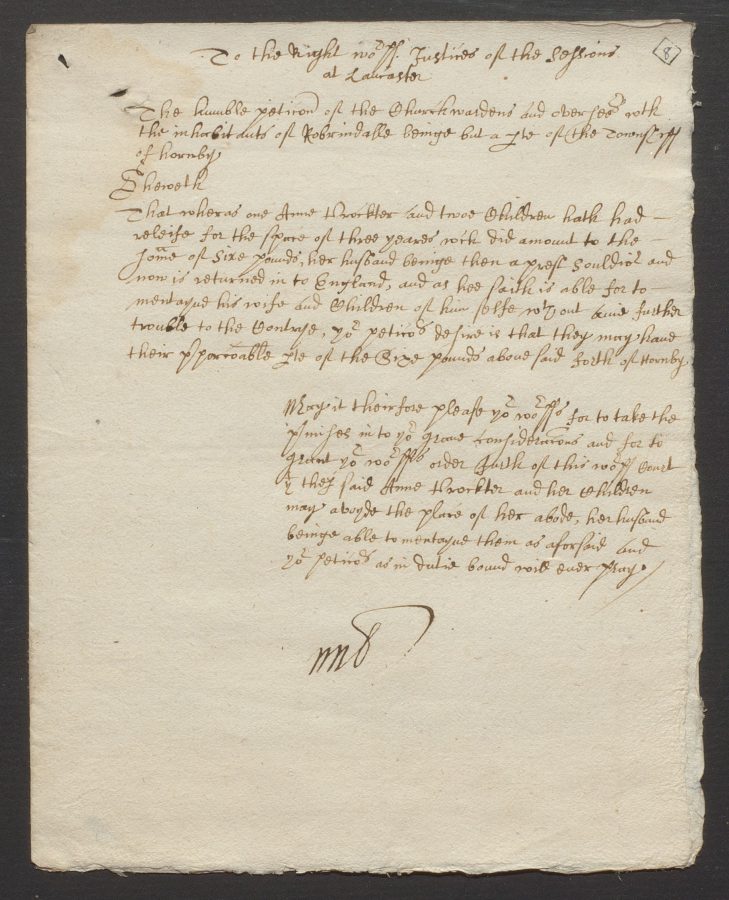 8
To the Right wo:ff: Justices of the Sessions
at Lancaster
The humble peticon of the Churchwardens and overseers wth
the inhabitants of Robrindalle beinge but a pte of the Townshipp
of Hornby
Sheweth
That wheras one Anne Prockter and twoe Children hath had
releife for the space of three yeares wich did amount to the
some of Sixe pounds, her husband beinge then a prest Souldior and
now is returned in to England, and as hee saith is able for to
mentayne his wife and Children of him selfe wthout anie further
trouble to the Contrye, yor peticors desire is that they may have
their pporconable pte of the Sixe pounds above said forth of Hornby
May it theirfore please yor worpps for to take the
pmises in to yor grave consideracons and for to
grant yor worpps order forth of this worpp Court
yt the said Anne Prockter and her Children
may avoyde the place of her abode, her husband
beinge able to mentayne them as aforsaid and
yor peticors as in dutie bound will ever pray